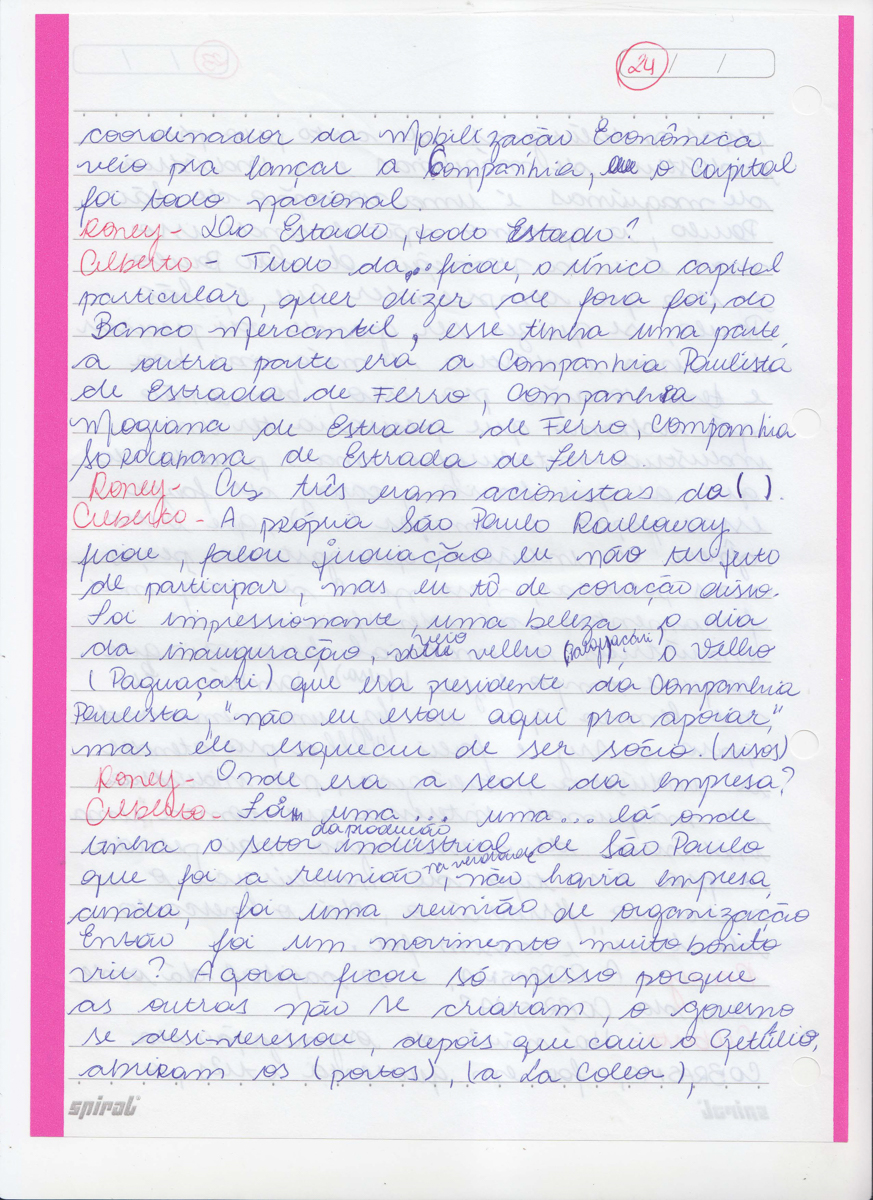 24 / /
coordinador da Mobilização Econômica
veio pra lançar a Companhia, o Capital
foi todo nacional.
Roney - Do Estado, todo Estado?
Gilberto - Tudo da... ficou, o único capital
particular, quer dizer de fora foi, do
Banco Mercantil, esse tinha uma parte
a outra parte era a Companhia Paulista
de Estrada de Ferro, Companhia
Mogiana de Estrada de Ferro, Companhia
Sorocabana de Estrada de Ferro.
Roney - Os três eram acionistas da ( ).
Gilberto - A própria São Paulo Raillaway
ficou, falou eu não
de participar, mas eu tô de coração disso.
Foi impressionante uma beleza, o dia
da inauguração, veio velho o Velho
(Paguaçari) que era presidente da Companhia
Paulista, "não eu estou aqui pra apoiar,"
mas ele esqueceu de ser sócio. (risos)
Roney - Onde era a sede da empresa?
Gilberto - uma... uma... lá onde
tinha o setor da produção industrial de São Paulo
que foi a reunião na verdade, não havia empresa
ainda, foi uma reunião de organização
Então foi um movimento muito bonito
viu? Agora ficou só nisso porque
as outras não se criaram, o governo
se desinteressou, depois que caiu o Getúlio,
abriram os (portos), (a La Colea),
spiral